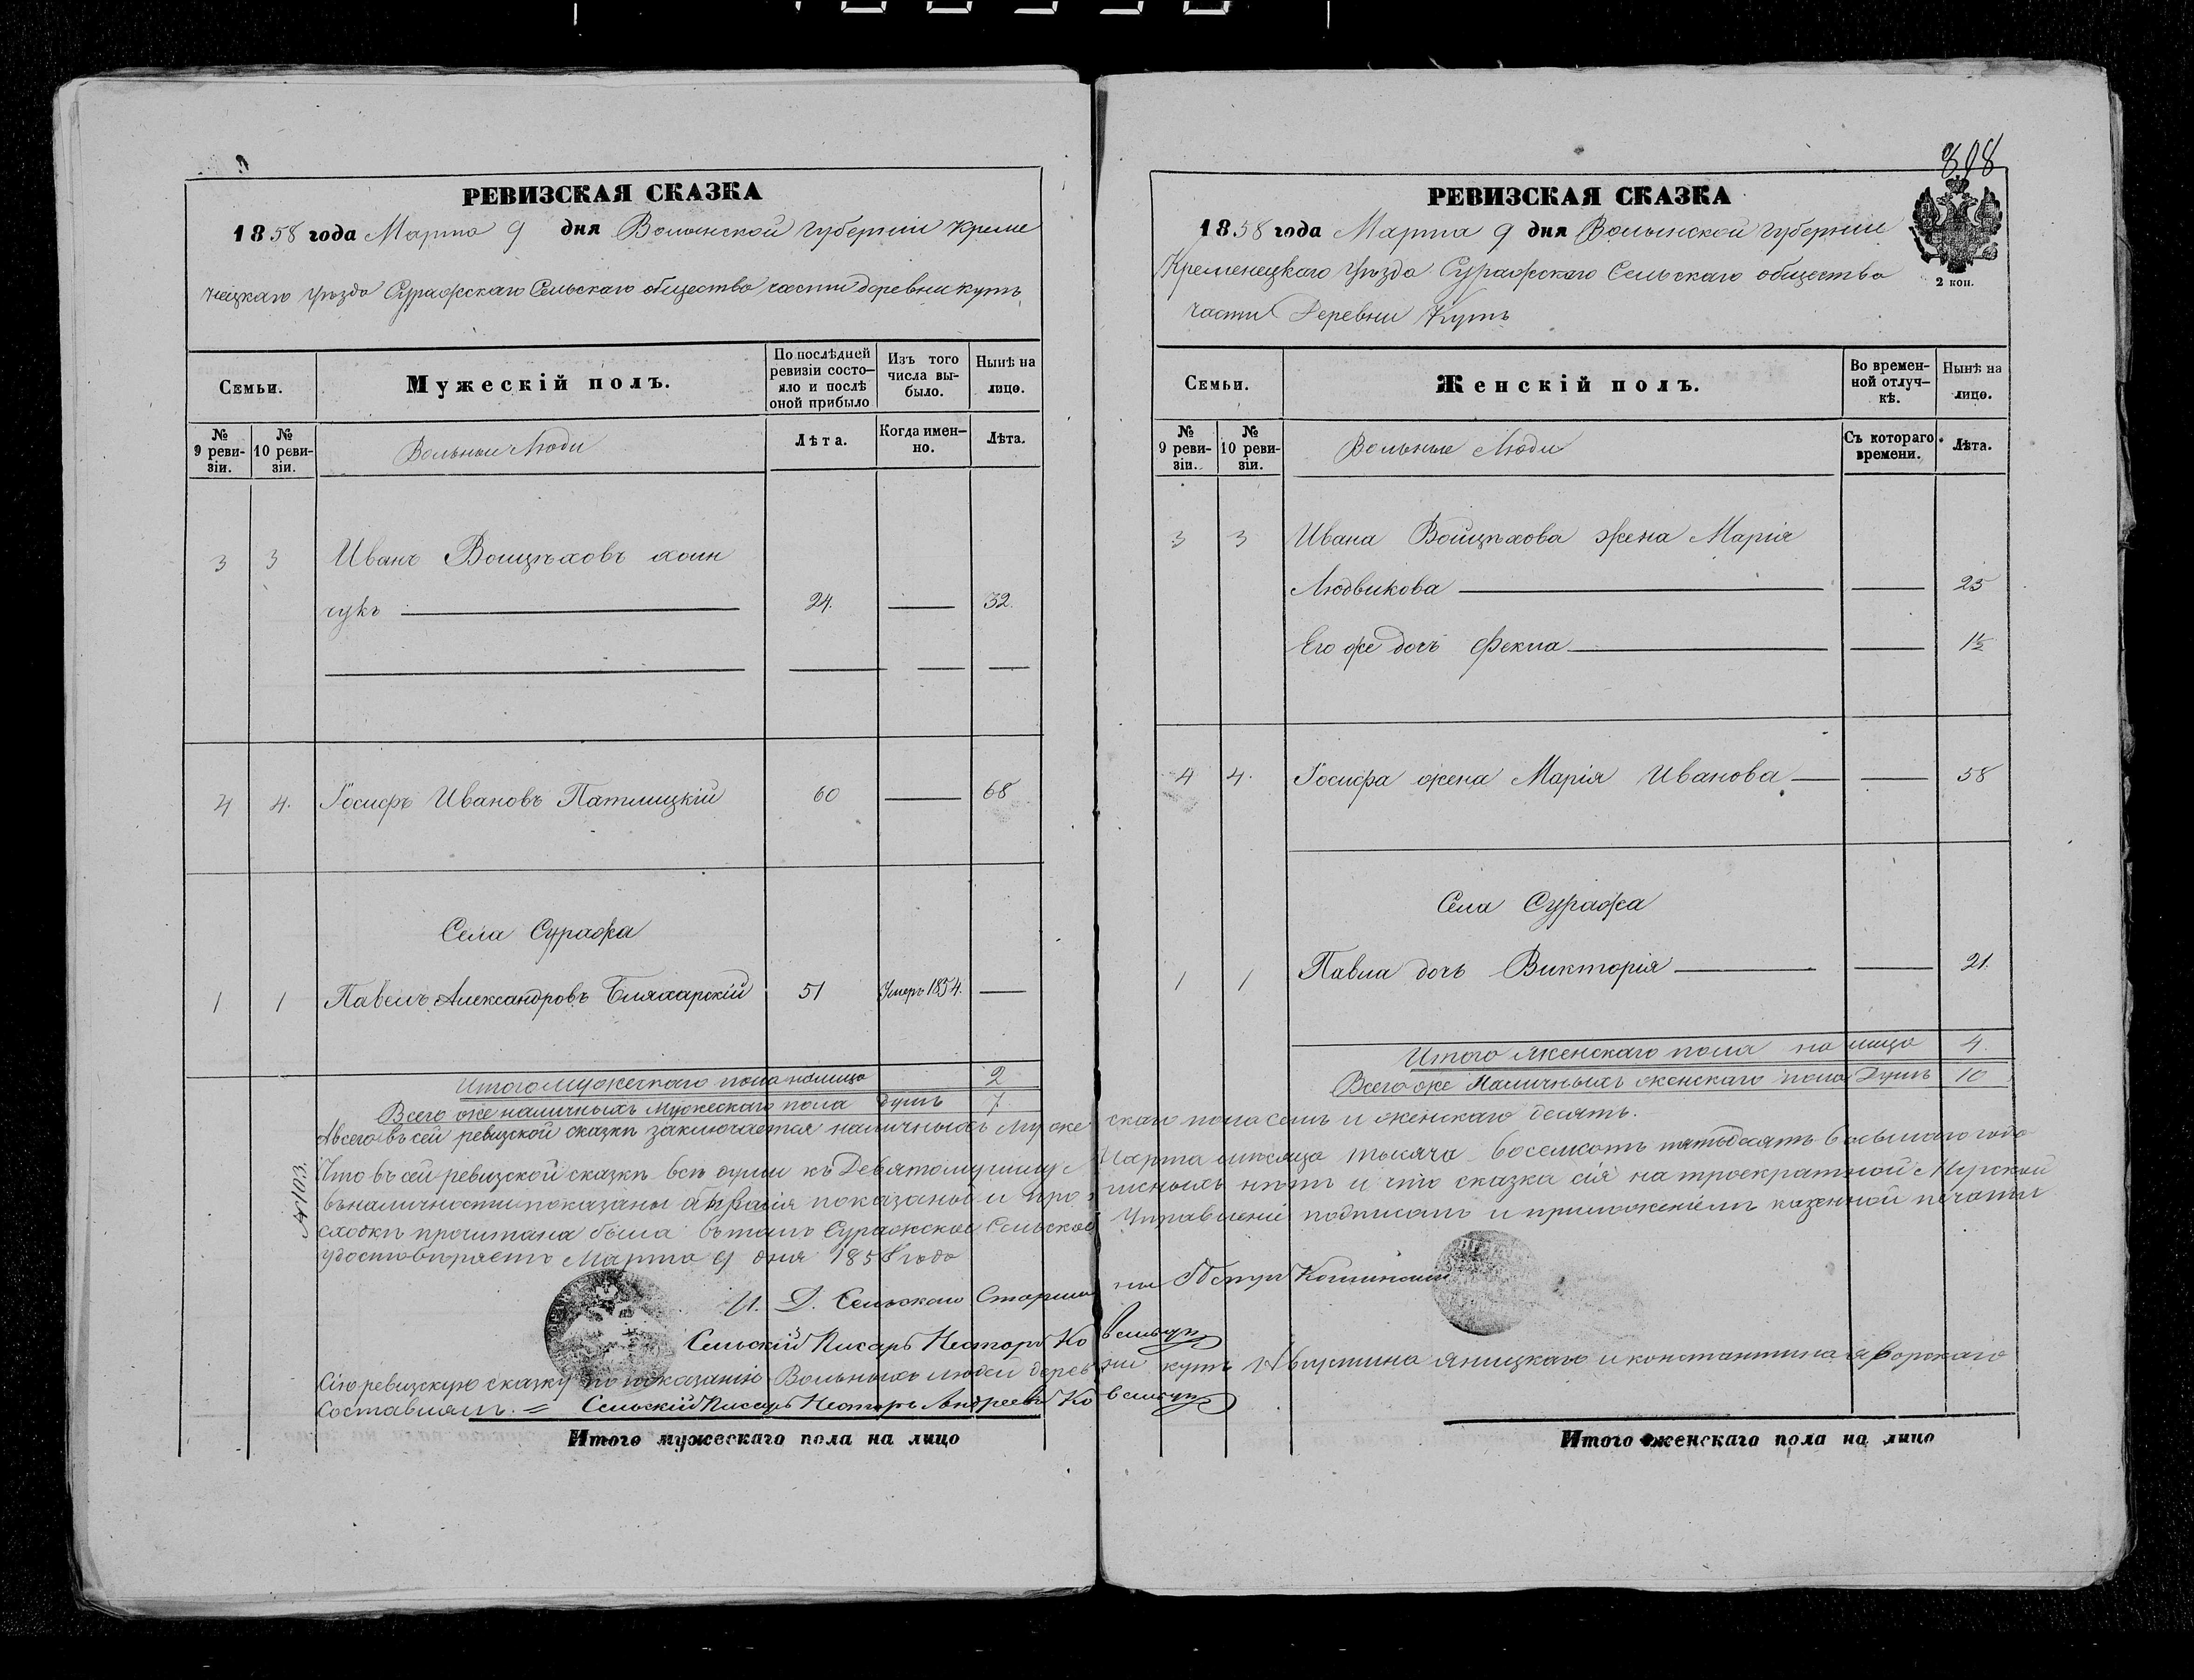 РЕВИЗСКАЯ СКАЗКА
1858 года Марта 9 дня Волынской Губерніи Креме
нецкаго Уѣзда Суражскаго Сельскаго общества части деревни Кутъ
Семьи.
Мужескій полъ.
По послѣдней ревизіи состо-яло и послѣ оной прибыло
Изъ того числа вы-было.
Нынѣ на лицо.
№ 9 реви-зіи.
№ 10 реви-зіи.
Вольные Люди
Лѣта.
Когда имен-но.
Лѣта.
3 3 Иванъ Войцѣховъ
чукъ 24. 32.
4 4. Іосифъ Ивановъ 60 68
Села Суража
1 1 Павелъ Александровъ Бляхарскій 51 Умеръ 1854.
Итого мужескаго пола на лицо 2
Всего же наличныхъ мужескаго пола душъ 7
А всего въ сей ревизской сказки заключается наличныхъ муже
№ 103.
Что въ сей ревизской сказкѣ всѣ души къ Девятому числу
въ наличности показаны
сходкѣ прочитана была въ томъ Суражское Сельское
удостовѣряетъ Марта 9 дня 1858 года
И. Д. Сельскаго Старши
Сельскій Писарь Несторъ Ко
Сію ревизскую сказку по показанію Вольныхъ людей дерев
Составлялъ. = Сельскій Писарь Несторъ Андреевъ Ко
Итого мужескаго пола на лицо
808
РЕВИЗСКАЯ СКАЗКА
1858 года Марта 9 дня Волынской Губерніи
Кременецкаго Уѣзда Суражскаго Сельскаго общества
2 коп.
части Деревни Кутъ
Семьи.
Женскій полъ.
Во времен-ной отлуч-кѣ.
Нынѣ на лицо.
№ 9 реви-зіи.
№ 10 реви-зіи.
Вольные Люди
Съ котораго времени.
Лѣта.
3 3 Ивана Войцѣхова жена Марія
Людвикова 25
Его же дочъ Фекла 1½
4 4. Іосифа жена Марія Иванова 58
Села Суража
1 1 Павла дочь Викторія 21.
Итого женскаго пола на лицо 4.
Всего же Наличныхъ женскаго пола Душъ 10
скаго пола семь и женскаго десять.
Марта мѣсяца тысяча восемсотъ пятьдесятъ восьмого года
нѣтъ и что сказка сія на троекратной Мирской
Управленіе подписомъ и приложеніемъ казенной печати
ны
вальчук
ни Кутъ Августина Яницкаго и Константина Яворскаго
вальчук
Итого женскаго пола на лицо